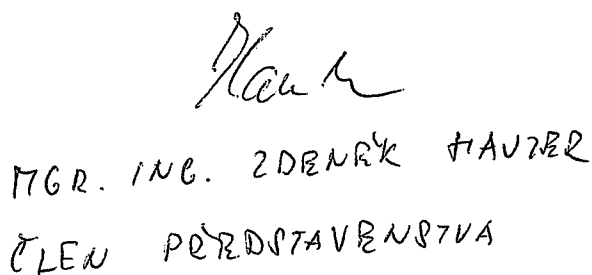 MGR. ING. ZDENĚK HAUZER
ČLEN PŘEDSTAVENSTVA